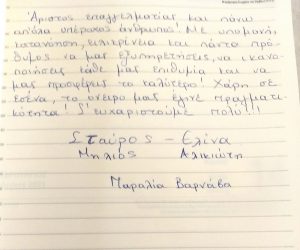 Άριστος επαγγελματίας και πάνω
απ'όλα υπέροχος άνθρωπος! Με υπομονή,
κατανόηση, ειλικρίνεια και πάντα πρό-
θυμος να μας εξυπηρετήσεις, να ικανο-
ποιήσεις κάθε μας επιθυμία και να
μας προσφέρεις το καλύτερο! Χάρη σε
εσένα, το όνειρο μας έγινε πραγματι-
κότητα! Σ'ευχαριστούμε πολύ!!!
Σταύρος - Ελίνα
Μηλιός Αλικιώτη
Μαραλία Βαρνάβα